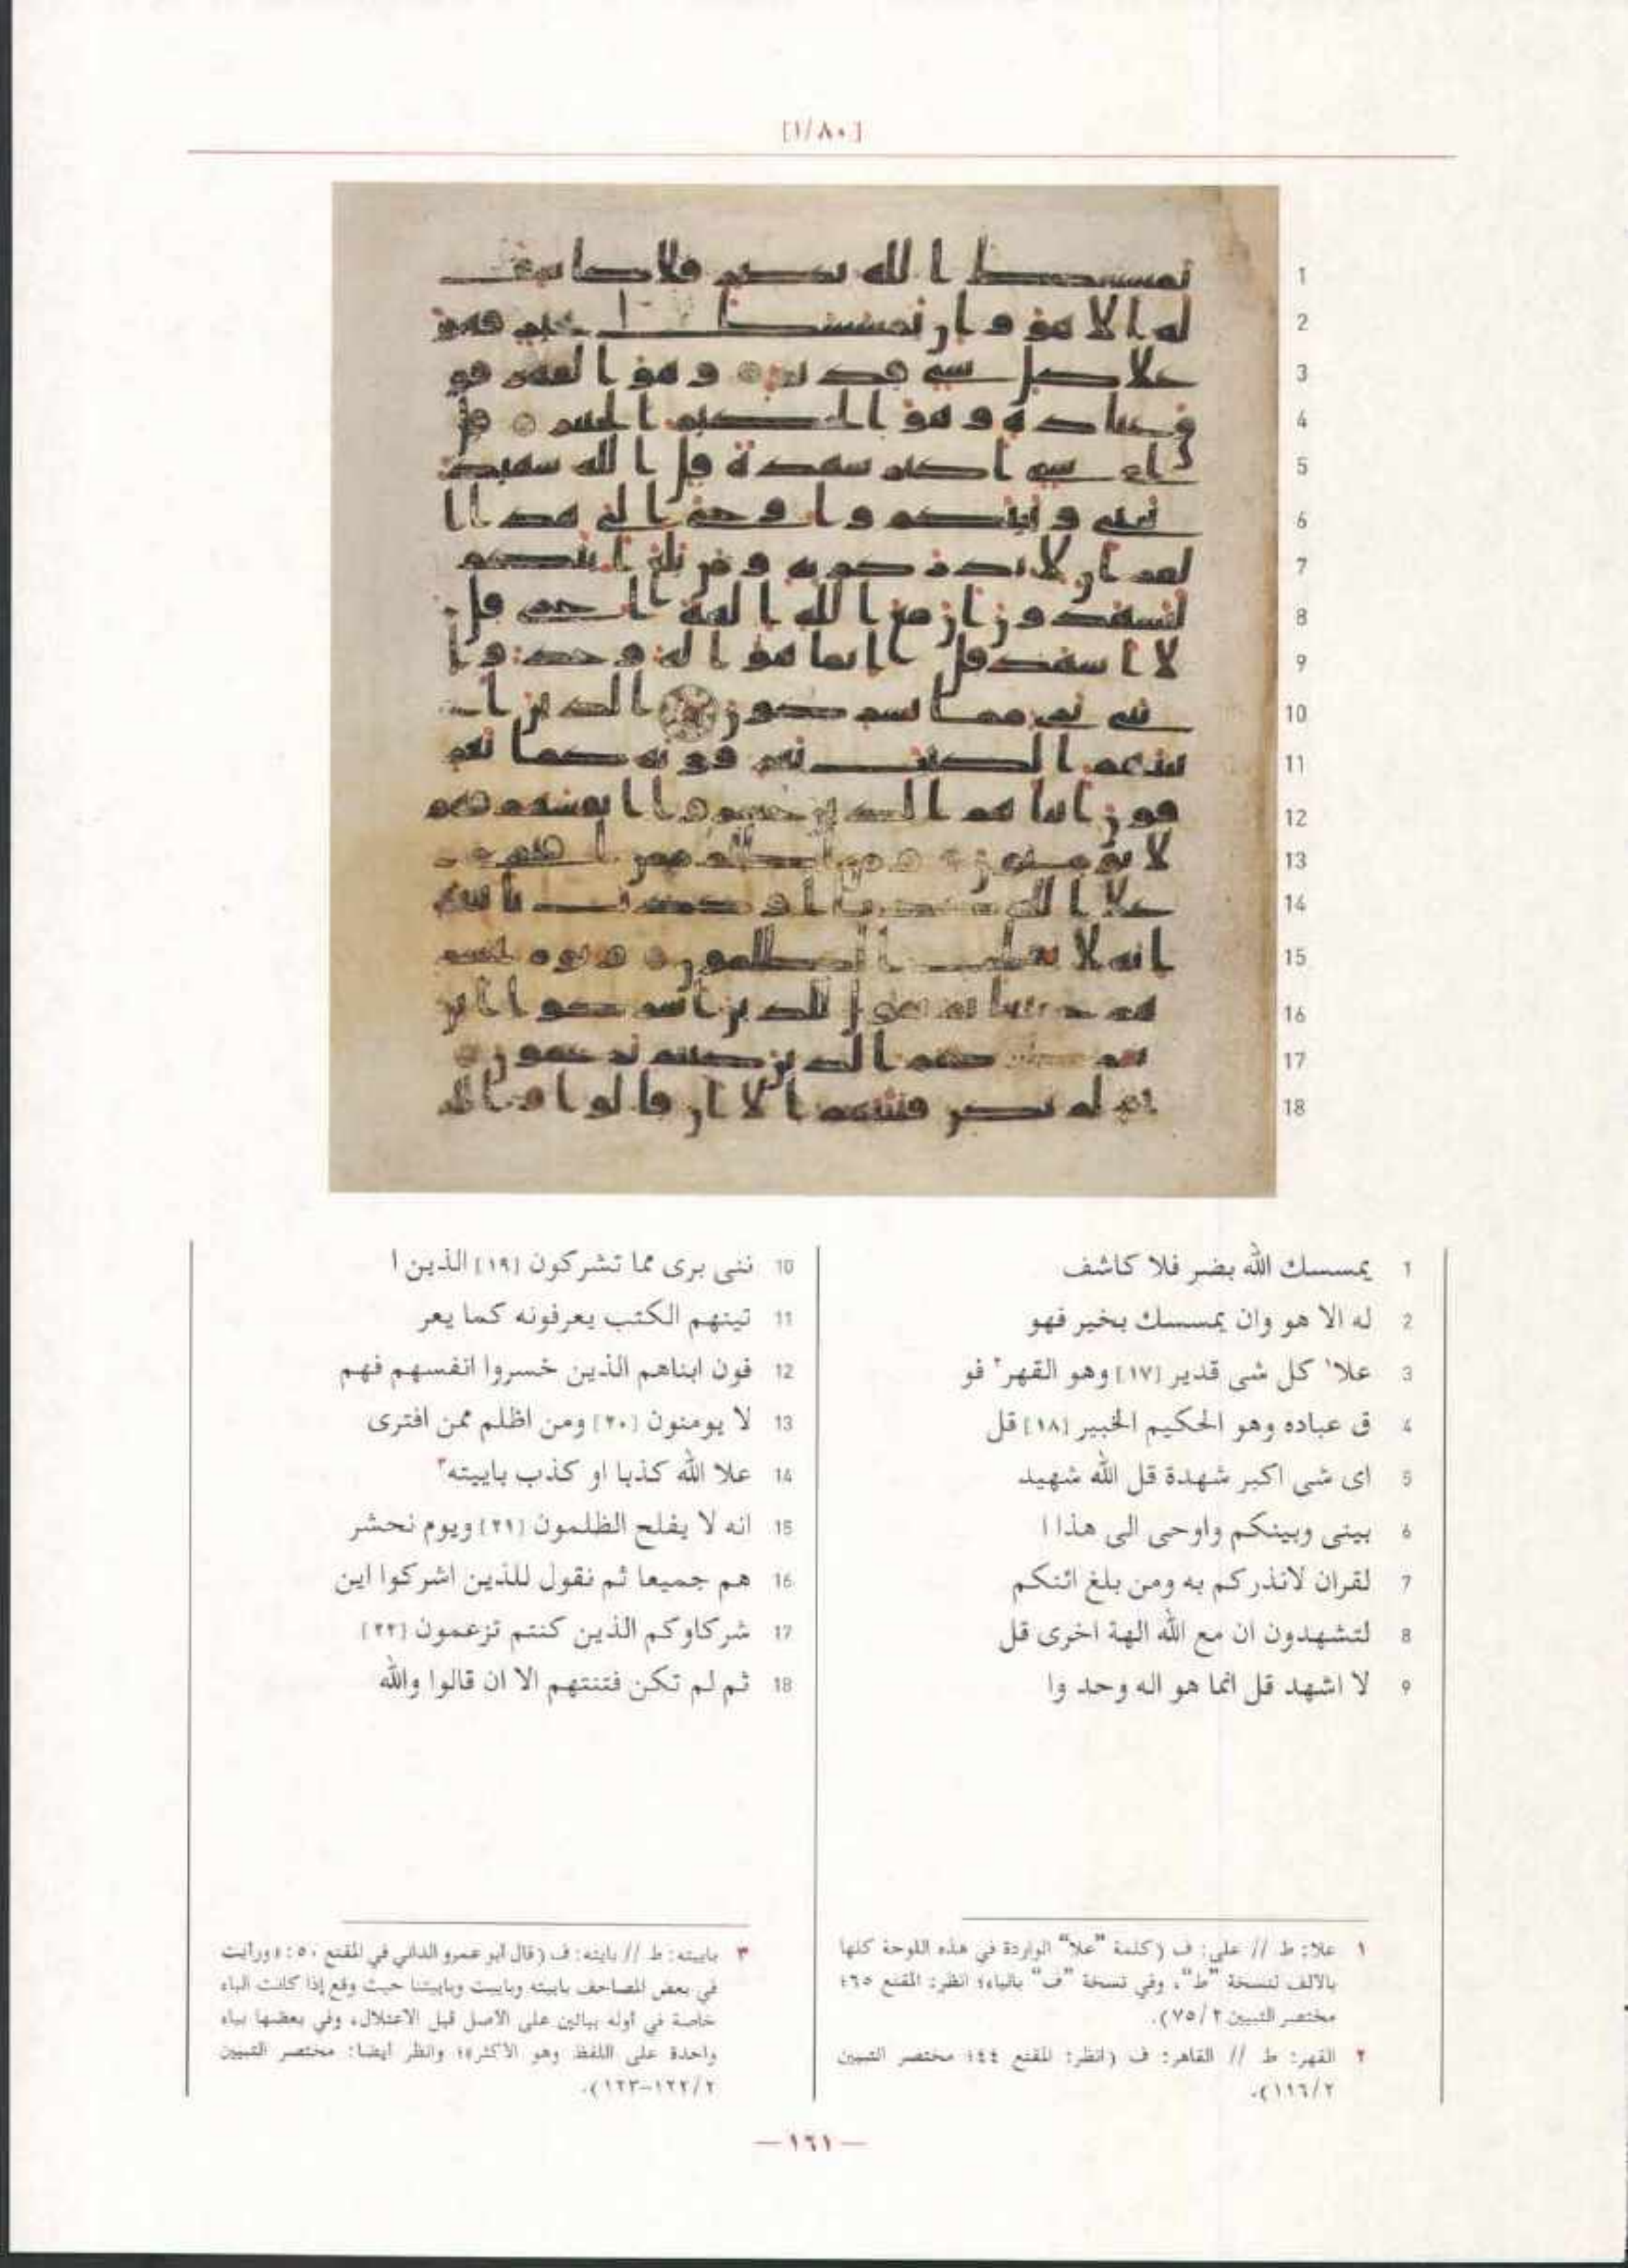 [١/٨٠]
1 يمسسك الله بضر فلا كاشف
2 له الا هو وان يمسسك بخير فهو
3 علا١ كل شى قدير [١٧] وهو القهر٢ فو
4 ق عباده وهو الحكيم الخبير [١٨] قل
5 اى شى اكبر شهدة قل الله شهيد
6 بينى وبينكم واوحى الى هذا ا
7 لقران لانذركم به ومن بلغ ائنكم
8 لتشهدون ان مع الله الهة اخرى قل
9 لا اشهد قل انما هو اله وحد وا
10 ننى برى مما تشركون [١٩] الذين ا
11 تينهم الكتب يعرفونه كما يعر
12 فون ابناهم الذين خسروا انفسهم فهم
13 لا يومنون [٢٠] ومن اظلم ممن افترى
14 علا الله كذبا او كذب باييته٣
15 انه لا يفلح الظلمون [٢١] ويوم نحشر
16 هم جميعا ثم نقول للذين اشركوا اين
17 شركاوكم الذين كنتم تزعمون [٢٢]
18 ثم لم تكن فتنتهم الا ان قالوا والله
١ علا: ط // على: ف (كلمة "علا" الواردة في هذه اللوحة كلها
بالألف لنسخة "ط"، وفي نسخة "ف" بالياء؛ انظر: المقنع ٦٥؛
مختصر التبيين ٧٥/٢).
٢ القهر: ط // القاهر: ف (انظر: المقنع ٤٤؛ مختصر التبيين
١١٦/٢).
٣ باييته: ط // بايته: ف (قال أبو عمرو الداني في المقنع ٥٠: «ورأيت
في بعض المصاحف باييته وباييت وباييتنا حيث وقع إذا كانت الباء
خاصة في أوله بيائين على الأصل قبل الاعتلال، وفي بعضها بياء
واحدة على اللفظ وهو الأكثر»؛ وانظر أيضا: مختصر التبيين
١٢٢/٢-١٢٣).
— ١٦١ —